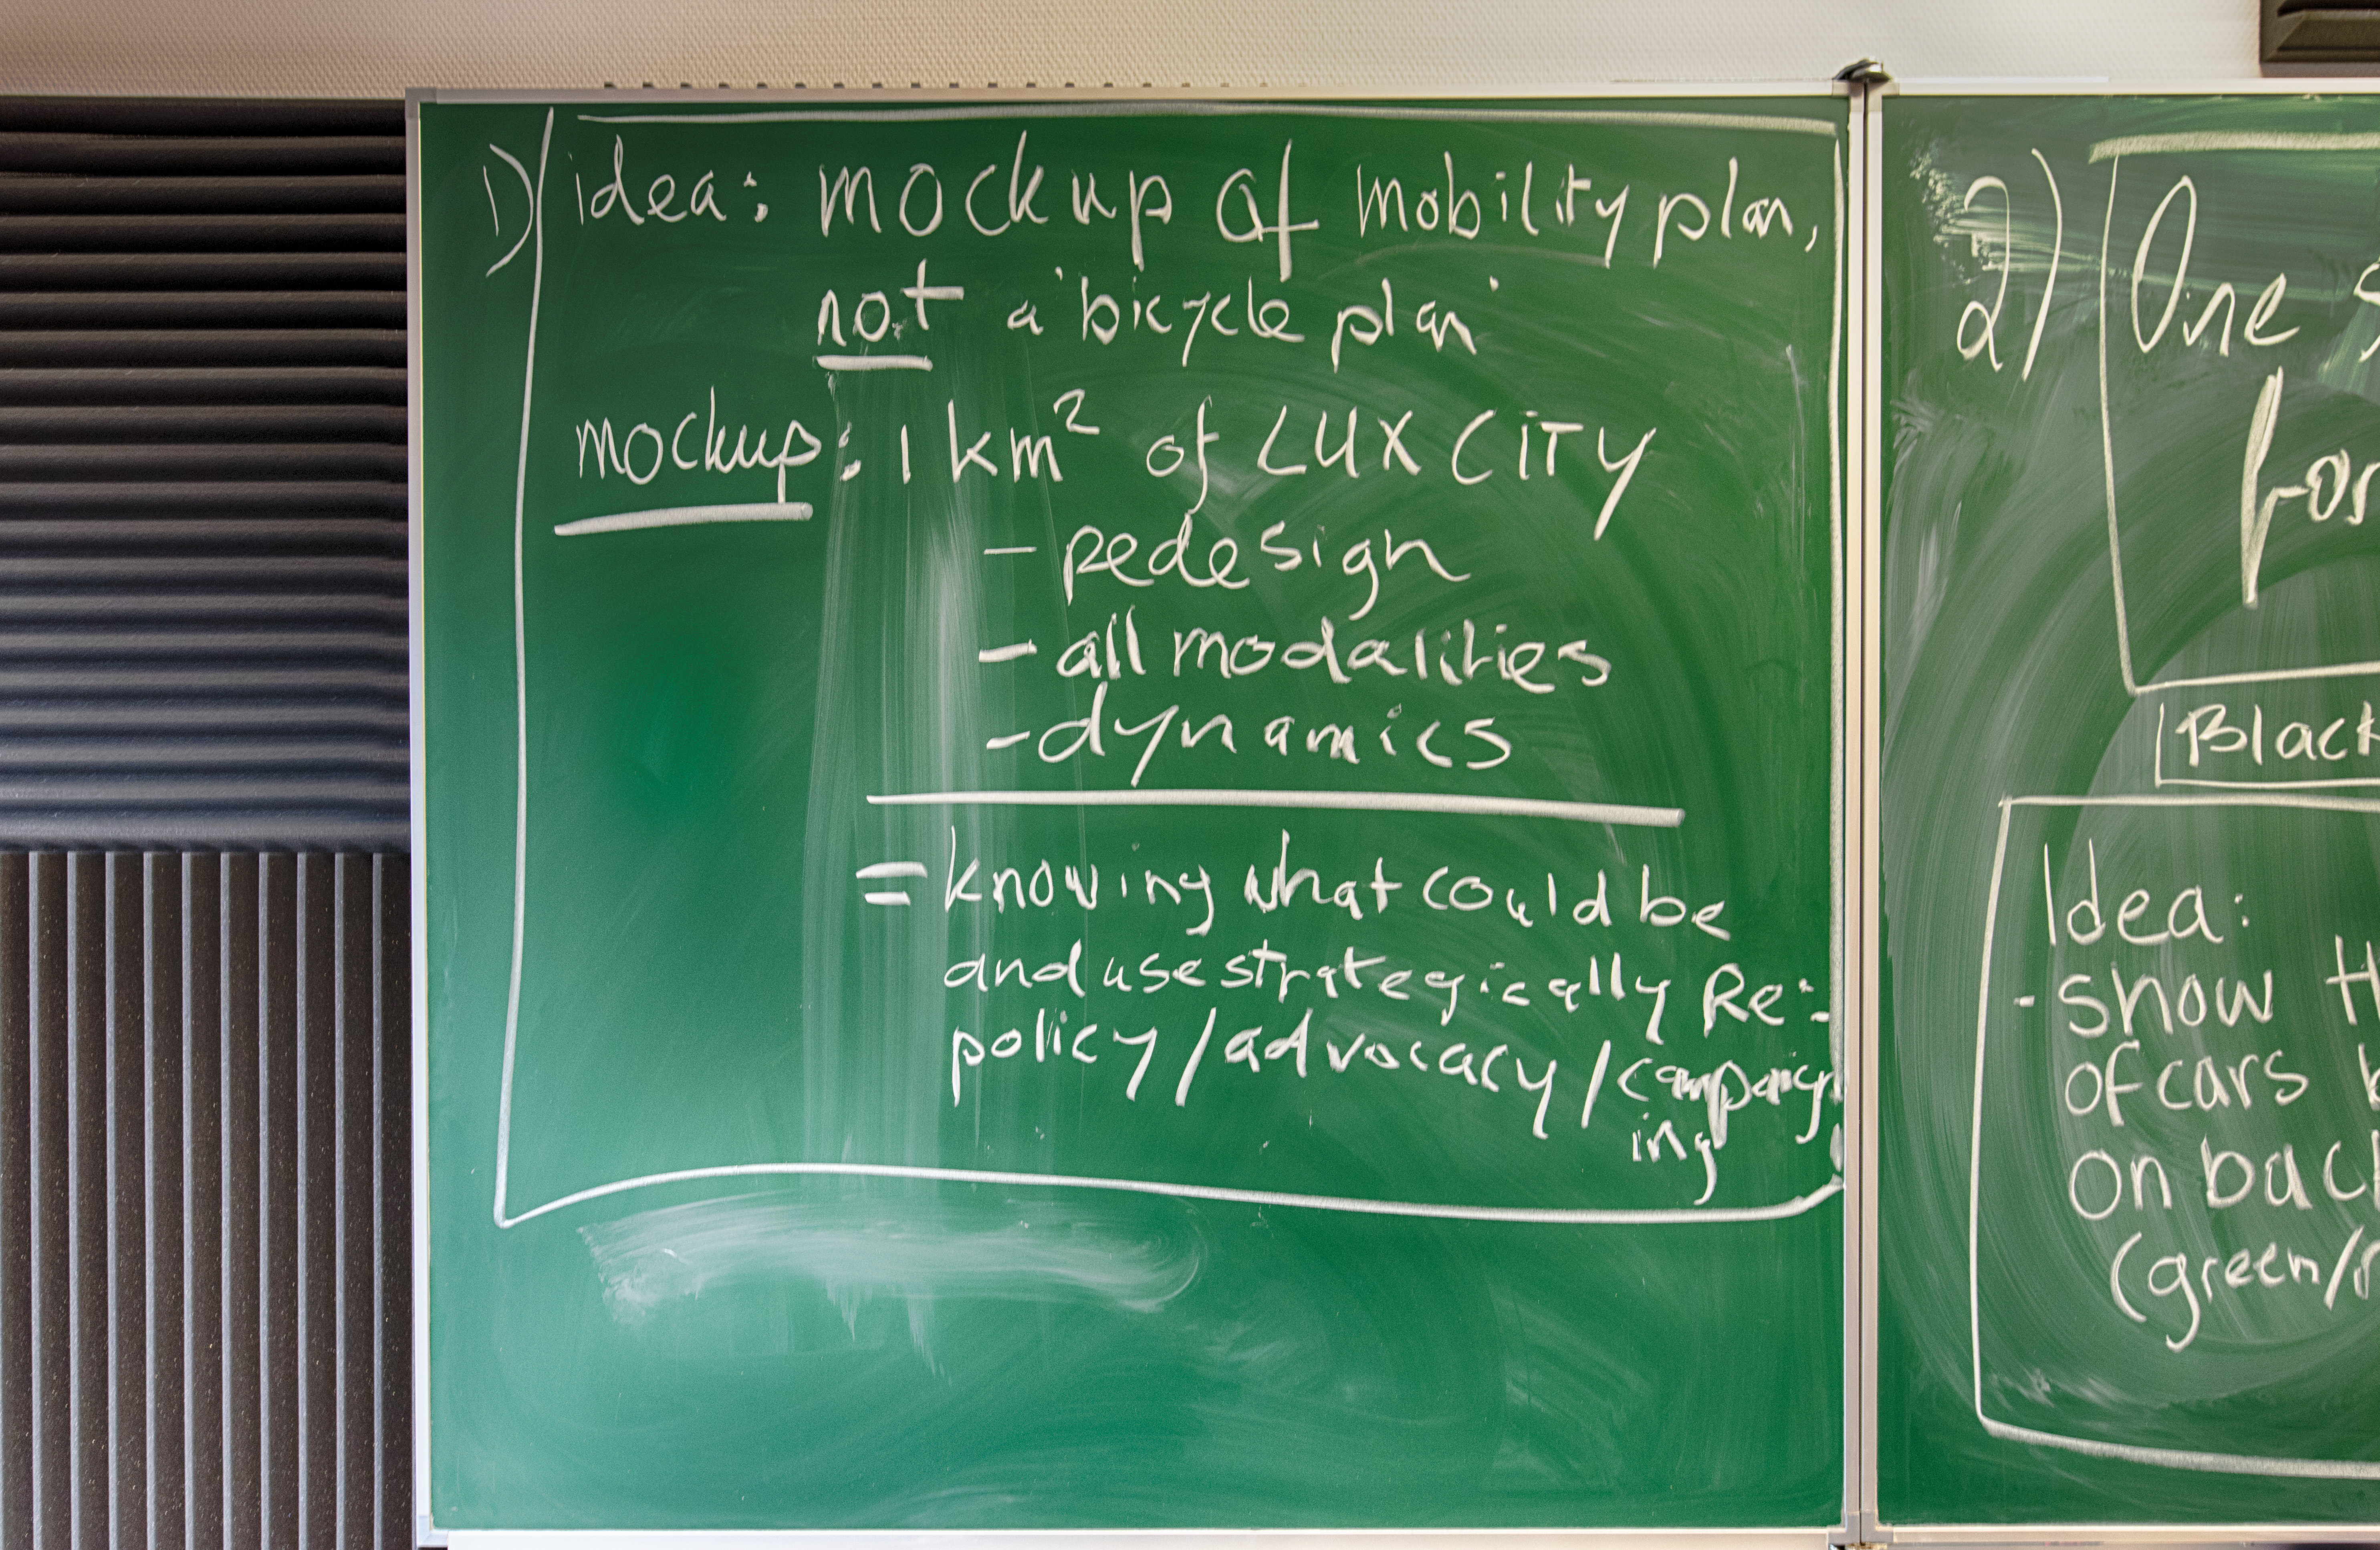 1) idea: mockup of mobility plan,
not a 'bicycle plan'
mockup: 1 km² of LUX CITY
- redesign
- all modalities
- dynamics
= knowing what could be
and use strategically Re:
policy/advocacy/campaign
ing
2) One
for
Black
Idea:
- show
of cars
on back
(green/